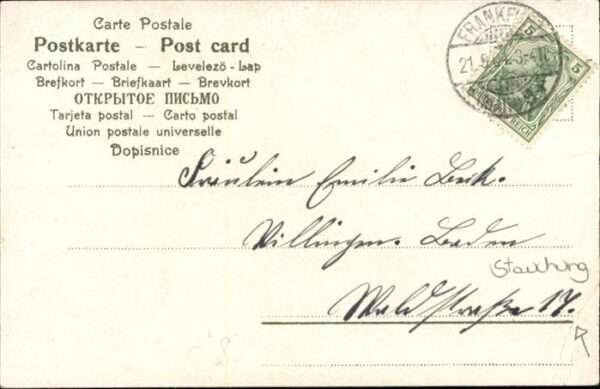 Carte Postale
Postkarte – Post card
Cartolina Postale — Levelező-Lap
Brefkort — Briefkaart — Brevkort
ОТКРЫТОЕ ПИСЬМО
Tarjeta postal — Carto postal
Union postale universelle
Dopisnice
5
5
Fräulein Emilie Beck.
Villingen. Baden
Stauchung
Waldstraße 17.